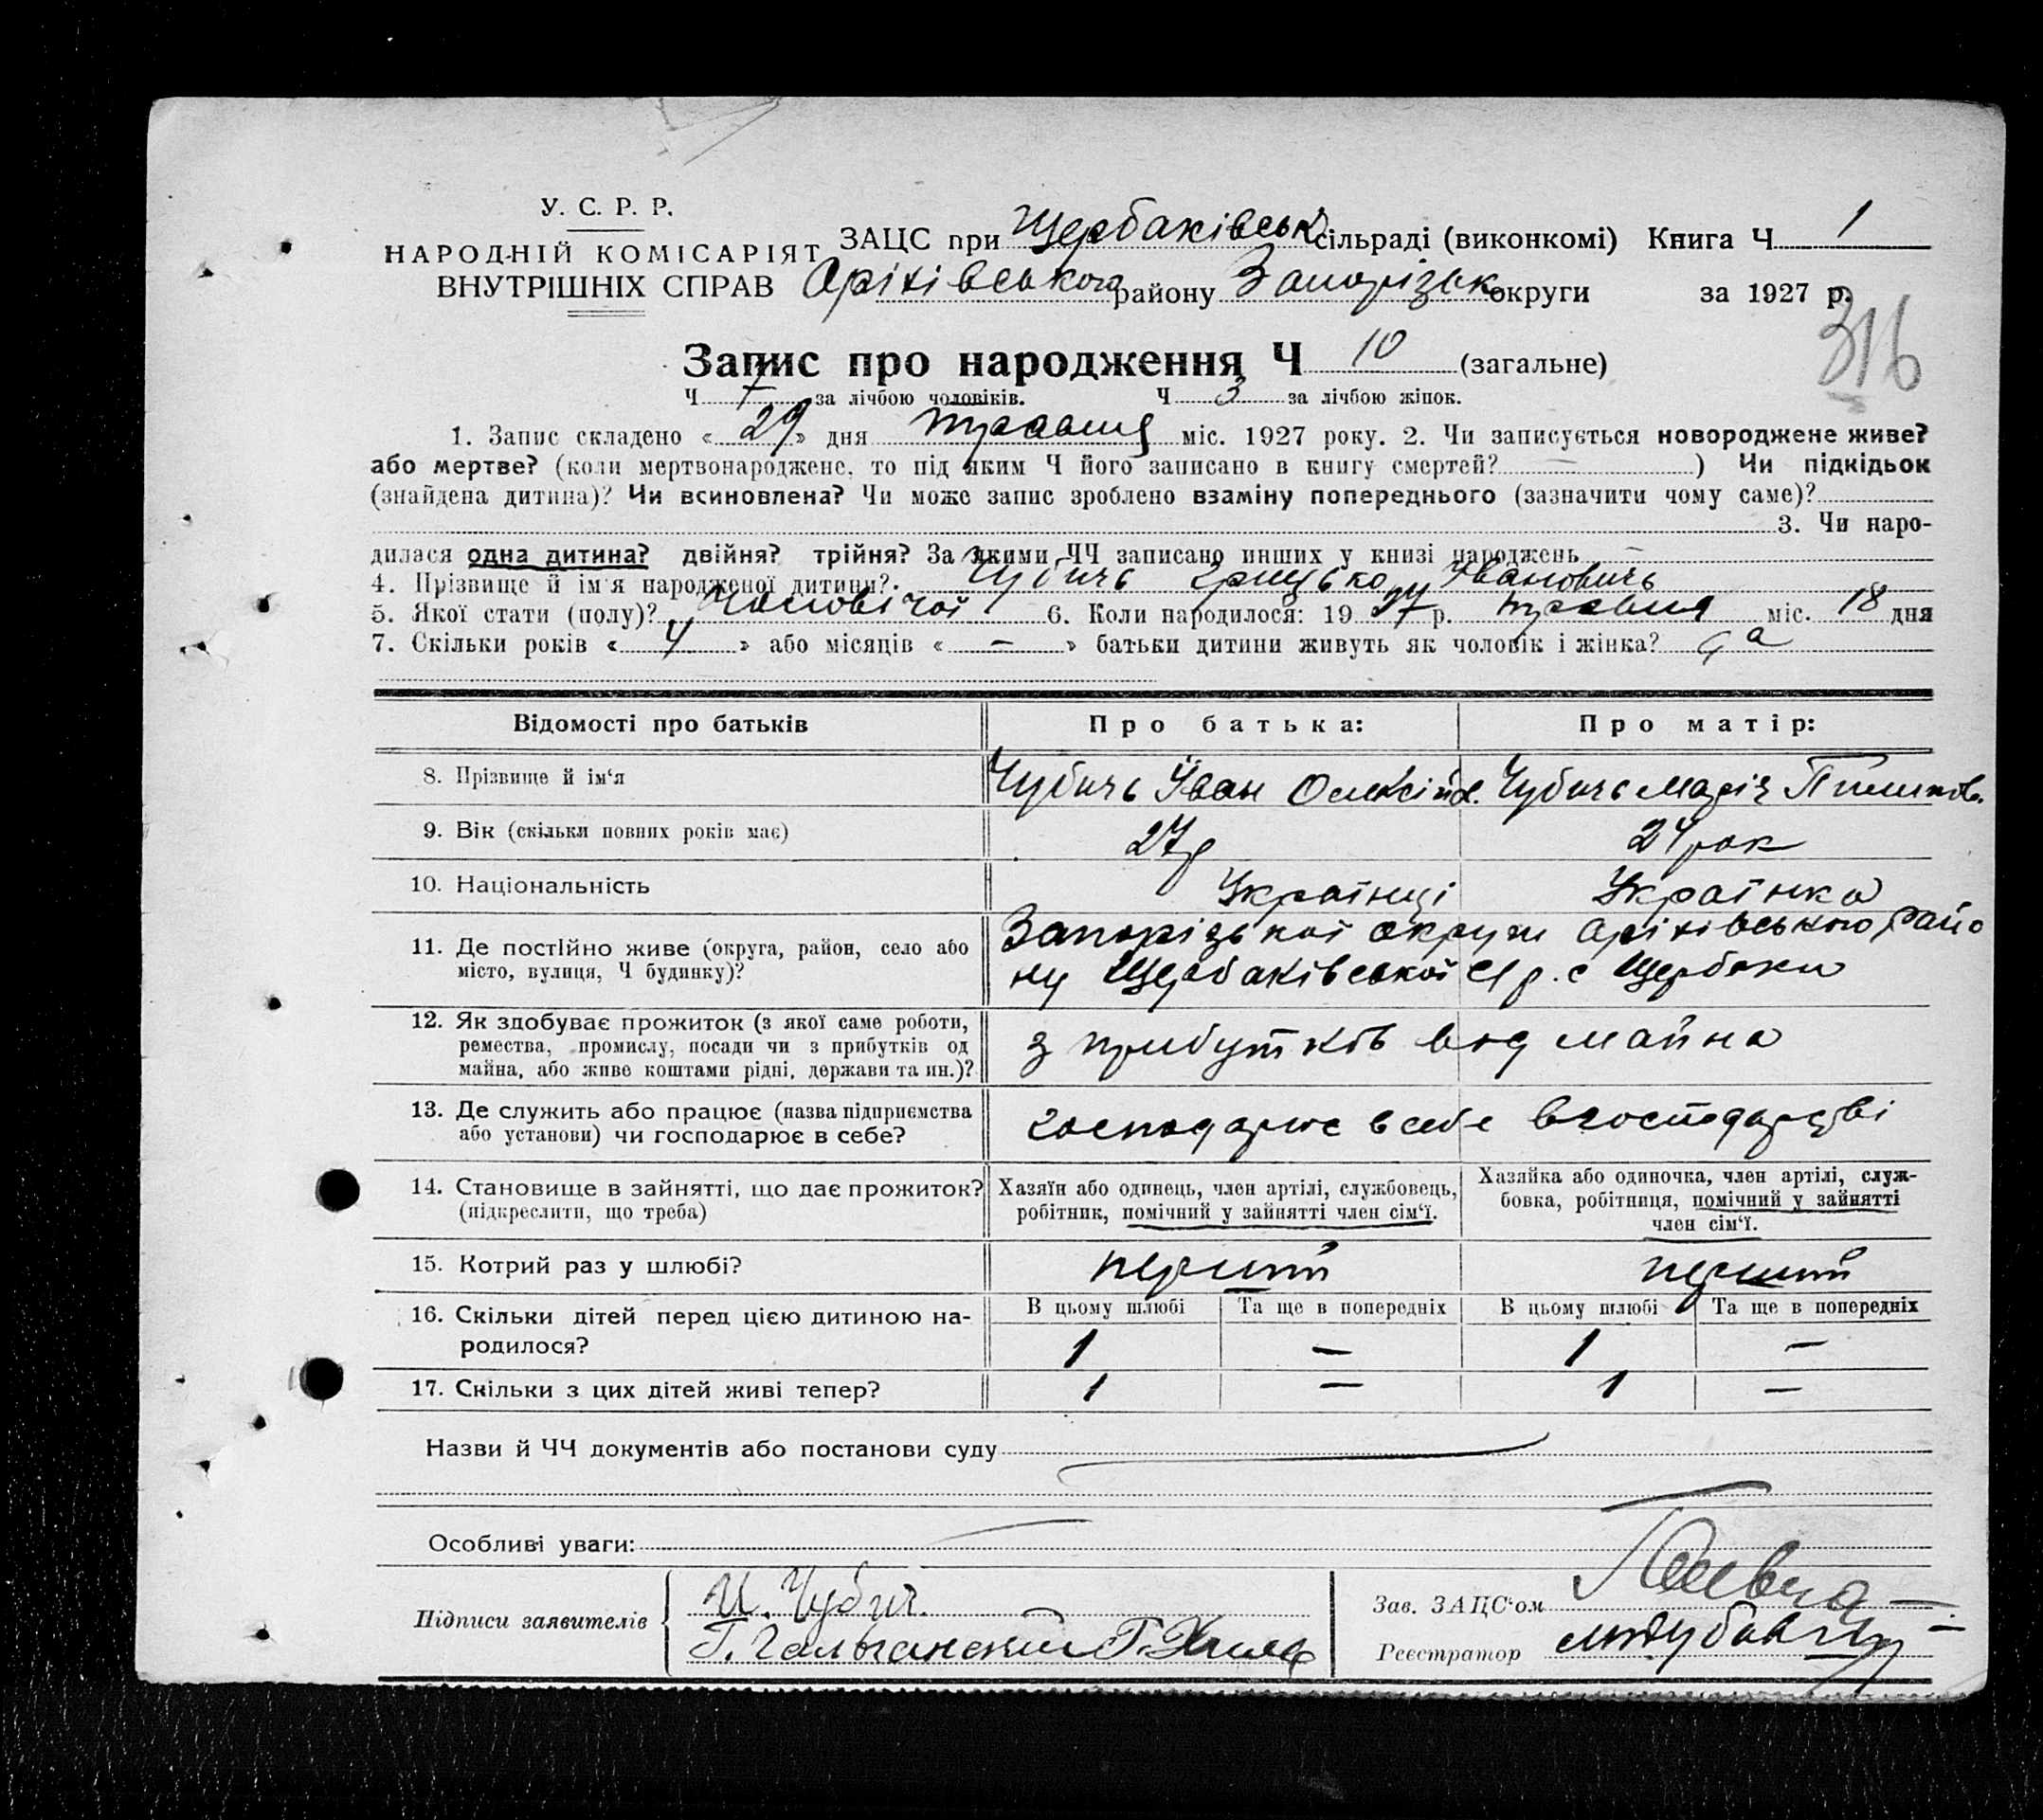 У. С. Р. Р.
НАРОДНІЙ КОМІСАРІЯТ
ВНУТРІШНІХ СПРАВ
ЗАЦС при Щербаківськ сільраді (виконкомі) Книга Ч 1
Оріхівського району Запорізьк округи за 1927 р.
316
Запис про народження Ч 10 (загальне)
Ч 7 за лічбою чоловіків. Ч 3 за лічбою жінок.
1. Запис складено « 29 » дня травня міс. 1927 року. 2. Чи записується новороджене живе?
або мертве? (коли мертвонароджене, то під яким Ч його записано в книгу смертей? — ) Чи підкідьок
(знайдена дитина)? Чи всиновлена? Чи може запис зроблено взаміну попереднього (зазначити чому саме)?
3. Чи наро-
дилася одна дитина? двійня? трійня? За якими ЧЧ записано инших у книзі народжень —
4. Прізвище й ім'я народженої дитини? Чубичь Грицько Івановичь
5. Якої стати (полу)? Чоловічої 6. Коли народилося: 19 27 р. травня міс. 18 дня
7. Скільки років « 4 » або місяців « — » батьки дитини живуть як чоловік і жінка? да
Відомості про батьків Про батька: Про матір:
8. Прізвище й ім'я Чубичь Іван Олексійов. Чубичь Марія
9. Вік (скільки повних років має) 27р 24 рок
10. Національність Українці Українка
11. Де постійно живе (округа, район, село або
місто, вулиця, Ч будинку)?
Запорізької округи Оріхівського райо
ну Щербаківської с/р. с Щербаки
12. Як здобуває прожиток (з якої саме роботи,
ремества, промислу, посади чи з прибутків од
майна, або живе коштами рідні, держави та ин.)?
з прибутків від майна
13. Де служить або працює (назва підприємства
або установи) чи господарює в себе?
господарює в себе в господарстві
14. Становище в зайнятті, що дає прожиток?
(підкреслити, що треба)
Хазяїн або одинець, член артілі, службовець,
робітник, помічний у зайнятті член сім'ї.
Хазяйка або одиночка, член артілі, служ-
бовка, робітниця, помічний у зайнятті
член сім'ї.
15. Котрий раз у шлюбі? перший перший
16. Скільки дітей перед цією дитиною на-
родилося?
В цьому шлюбі Та ще в попередніх В цьому шлюбі Та ще в попередніх
1 — 1 —
17. Скільки з цих дітей живі тепер? 1 — 1 —
Назви й ЧЧ документів або постанови суду
Особливі уваги:
Підписи заявителів
И. Чубич.
Зав. ЗАЦС'ом
Реєстратор